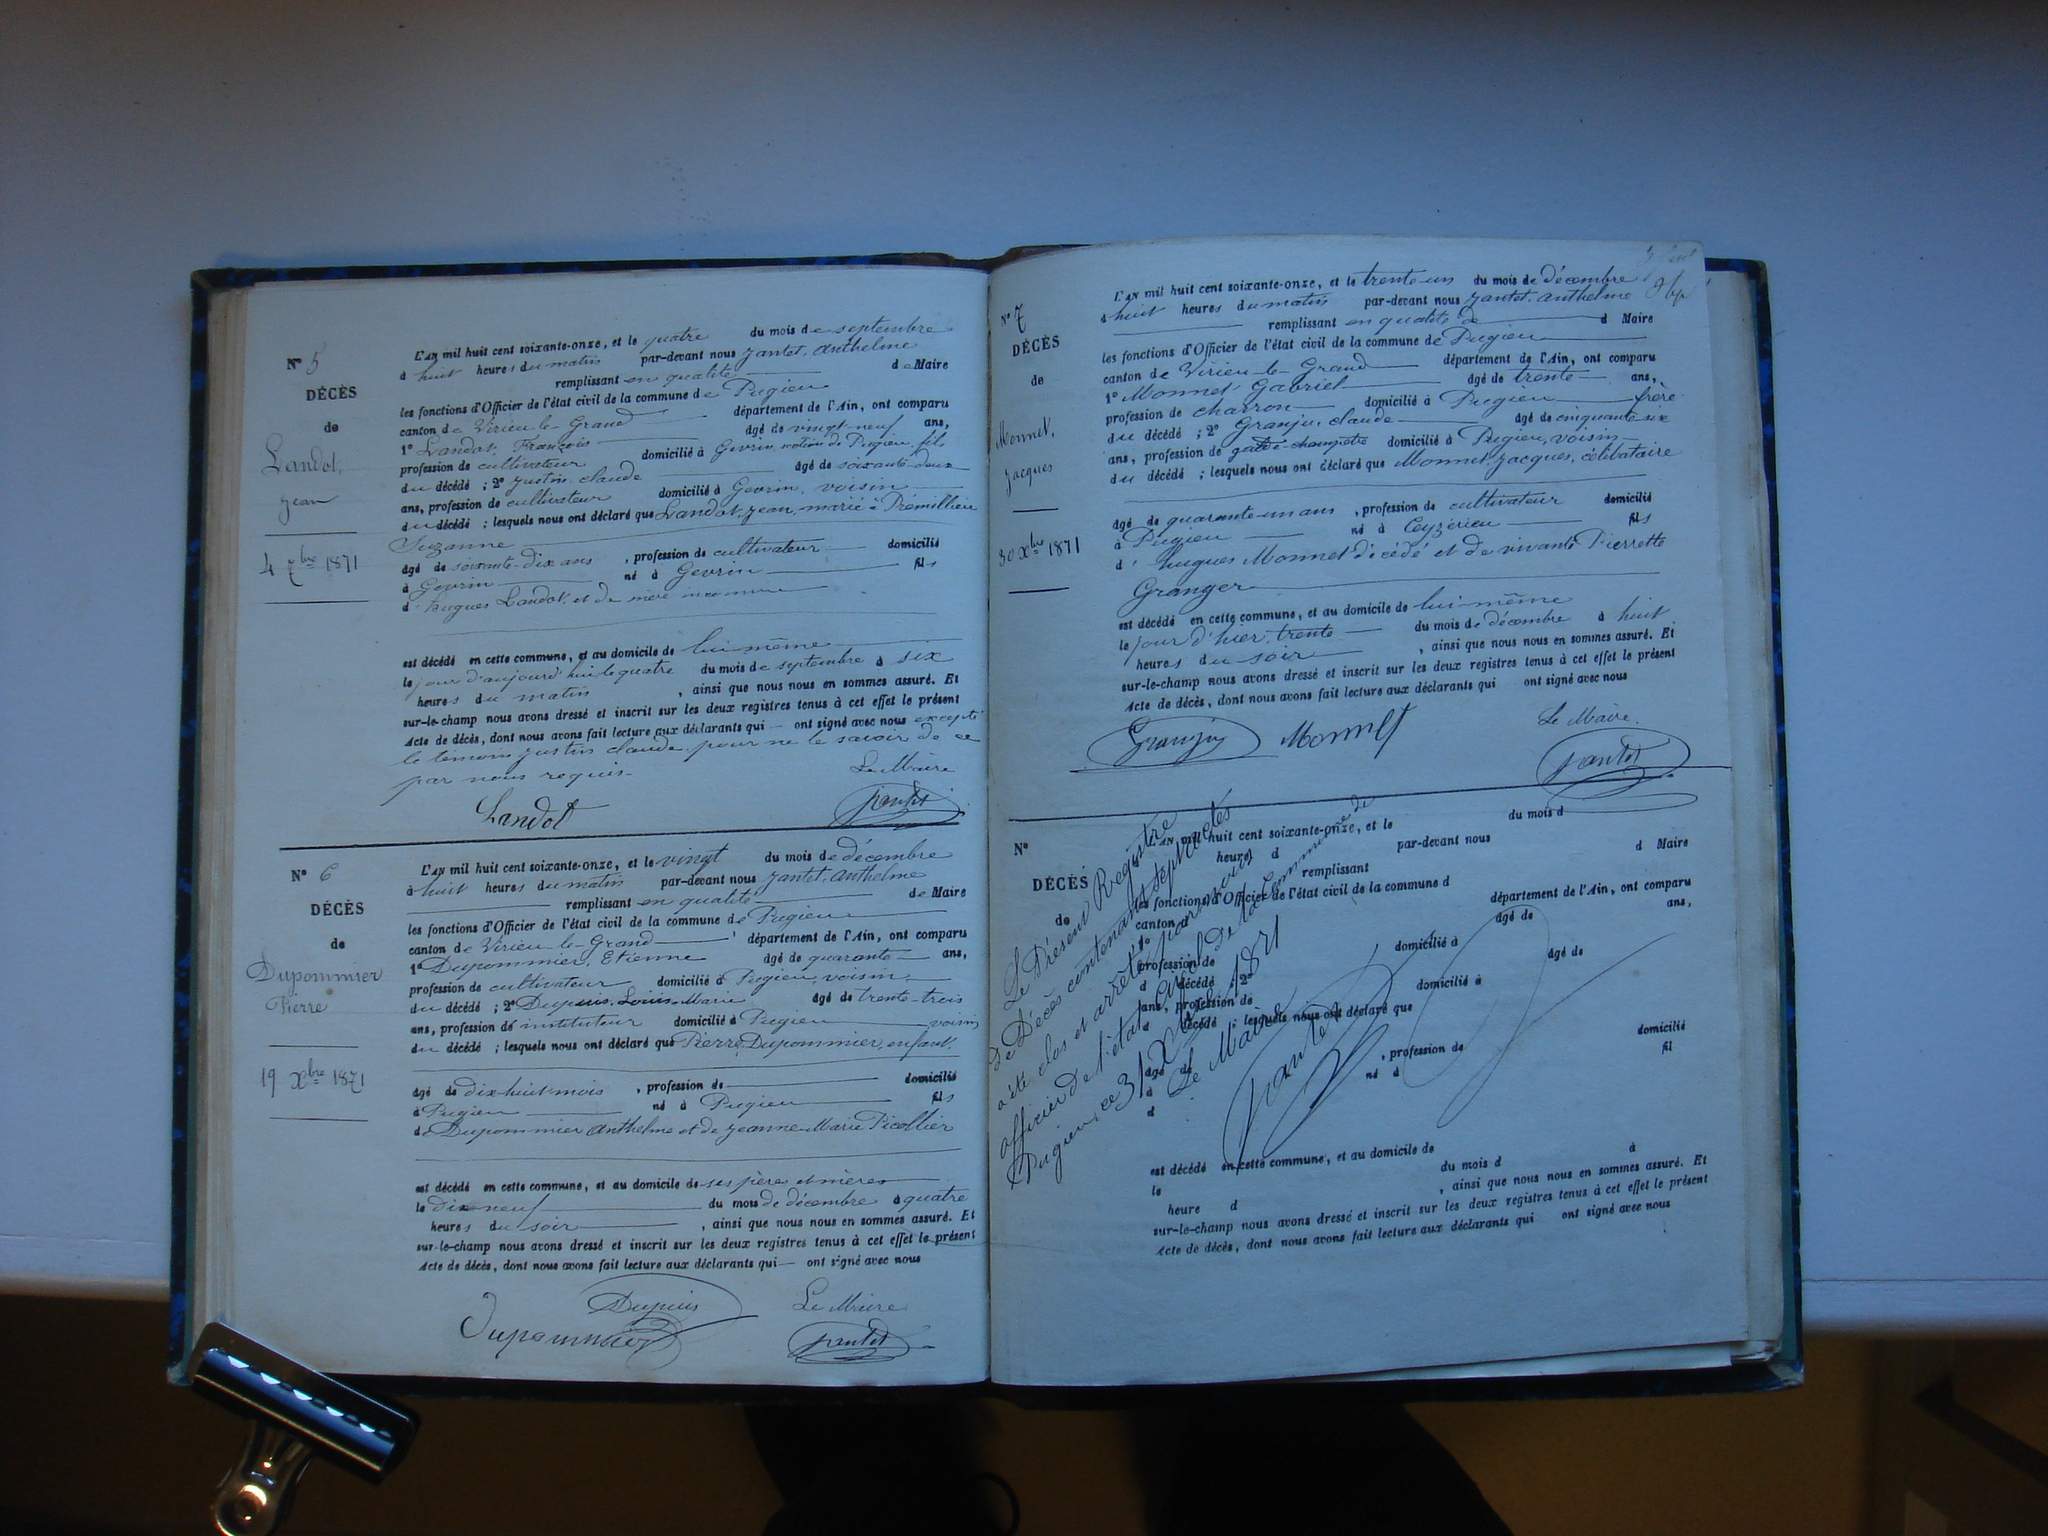 N° 5
DÉCÈS
de
Landot,
Jean
4 7bre 1871
L'AN mil huit cent soixante-onze, et le quatre du mois de septembre
à huit heures du matin par-devant nous Jantet, Anthelme
remplissant en qualité de Maire
les fonctions d'Officier de l'état civil de la commune de Pugieu
canton de Virieu-le-Grand département de l'Ain, ont comparu
1° Landot, François âgé de vingt-neuf ans,
profession de cultivateur domicilié à Gevrin, section de Pugieu, fils
du décédé ; 2° Justin, Claude âgé de soixante-deux
ans, profession de cultivateur domicilié à Gevrin, voisin
du décédé ; lesquels nous ont déclaré que Landot, Jean, marié à Prémillieu
Suzanne
âgé de soixante-dix ans , profession de cultivateur domicilié
à Gevrin né à Gevrin fils
d' hugues Landot, et de mère inconnue
est décédé en cette commune, et au domicile de lui-même
le jour d'aujourd'hui le quatre du mois de septembre à six
heures du matin , ainsi que nous nous en sommes assuré. Et
sur-le-champ nous avons dressé et inscrit sur les deux registres tenus à cet effet le présent
Acte de décès, dont nous avons fait lecture aux déclarants qui ont signé avec nous excepté
le témoin Justin Claude pour ne le savoir de ce
par nous requis.
Le Maire
Landot Jantet
N° 6
DÉCÈS
de
Dupommier
Pierre
19 Xbre 1871
L'AN mil huit cent soixante-onze, et le vingt du mois de décembre
à huit heures du matin par-devant nous Jantet, Anthelme
remplissant en qualité de Maire
les fonctions d'Officier de l'état civil de la commune de Pugieu
canton de Virieu-le-Grand département de l'Ain, ont comparu
1° Dupommier, Etienne âgé de quarante ans,
profession de cultivateur domicilié à Pugieu, voisin
du décédé ; 2° Dupuis, Louis-Marie âgé de trente-trois
ans, profession de instituteur domicilié à Pugieu voisin
du décédé ; lesquels nous ont déclaré que Pierre Dupommier, enfant,
âgé de dix-huit mois , profession de domicilié
à Pugieu né à Pugieu fils
de Dupommier Anthelme et de Jeanne-Marie Picollier
est décédé en cette commune, et au domicile de ses père et mère
le dix-neuf du mois de décembre à quatre
heures du soir , ainsi que nous nous en sommes assuré. Et
sur-le-champ nous avons dressé et inscrit sur les deux registres tenus à cet effet le présent
Acte de décès, dont nous avons fait lecture aux déclarants qui ont signé avec nous
Dupuis Le Maire
Dupommier Jantet
N° 7
DÉCÈS
de
Monnet,
Jacques
30 Xbre 1871
L'AN mil huit cent soixante-onze, et le trente-un du mois de décembre
à huit heures du matin par-devant nous Jantet, Anthelme
remplissant en qualité de d Maire
les fonctions d'Officier de l'état civil de la commune de Pugieu
canton de Virieu-le-Grand département de l'Ain, ont comparu
1° Monnet, Gabriel âgé de trente ans,
profession de charron domicilié à Pugieu frère
du décédé ; 2° Granju, Claude âgé de cinquante-six
ans, profession de garde-champêtre domicilié à Pugieu, voisin
du décédé ; lesquels nous ont déclaré que Monnet, Jacques, célibataire
âgé de quarante-un ans , profession de cultivateur domicilié
à Pugieu né à Ceyzérieu fils
d' hugues Monnet décédé et de vivante Pierrette
Granger
est décédé en cette commune, et au domicile de lui-même
le jour d'hier, trente du mois de décembre à huit
heures du soir , ainsi que nous nous en sommes assuré. Et
sur-le-champ nous avons dressé et inscrit sur les deux registres tenus à cet effet le présent
Acte de décès, dont nous avons fait lecture aux déclarants qui ont signé avec nous
Le Maire.
Granju Monnet Jantet
N°
DÉCÈS
de
L'AN mil huit cent soixante-onze, et le du mois d
heure d par-devant nous
remplissant d Maire
les fonctions d'Officier de l'état civil de la commune d
canton d département de l'Ain, ont comparu
1° âgé de ans,
profession de domicilié à
d décédé 2° âgé de
ans, profession de domicilié à
d décédé ; lesquels nous ont déclaré que
âgé de , profession de domicilié
à né à fil
d
est décédé en cette commune, et au domicile de
le du mois d à
heure d , ainsi que nous nous en sommes assuré. Et
sur-le-champ nous avons dressé et inscrit sur les deux registres tenus à cet effet le présent
Acte de décès, dont nous avons fait lecture aux déclarants qui ont signé avec nous
Le Présent Registre
de Décès contenant sept actes
a été clos et arrêté par nous
officier de l'état civil de la Commune de
Pugieu, ce 31 Xbre 1871
Le Maire
Jantet